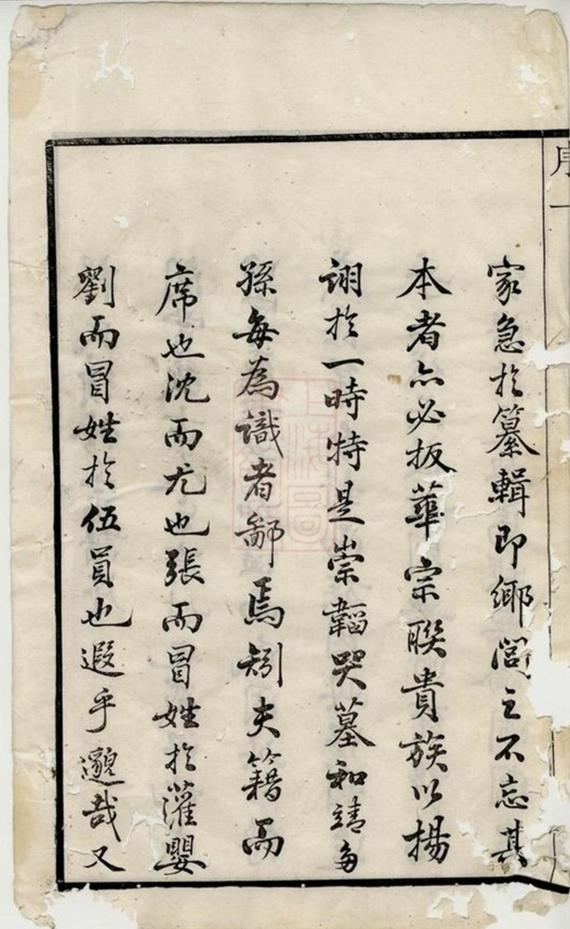 序一
家急於纂輯即鄉閭之不忘其
本者亦必扳華宗聯貴族以揚
詡於一時特是崇韜哭墓和靖多
孫每為識者鄙焉矧夫籍而
席也沈而尤也張而冒姓於灌嬰
劉而冒姓於伍員也遐乎邈哉又